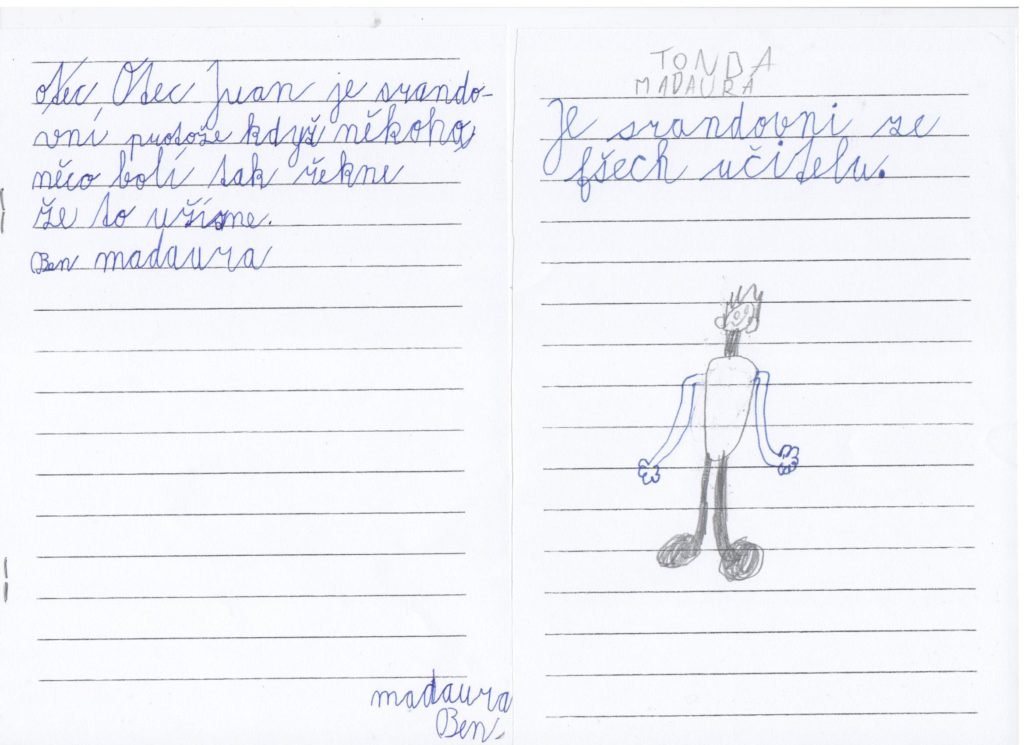 otec Otec Juan je srando-
vní protože když někoho
něco bolí tak řekne
že to užízne.
Ben madaura
madaura
Ben
TONDA
MADAURA
Je srandovni ze
fšech učitelu.